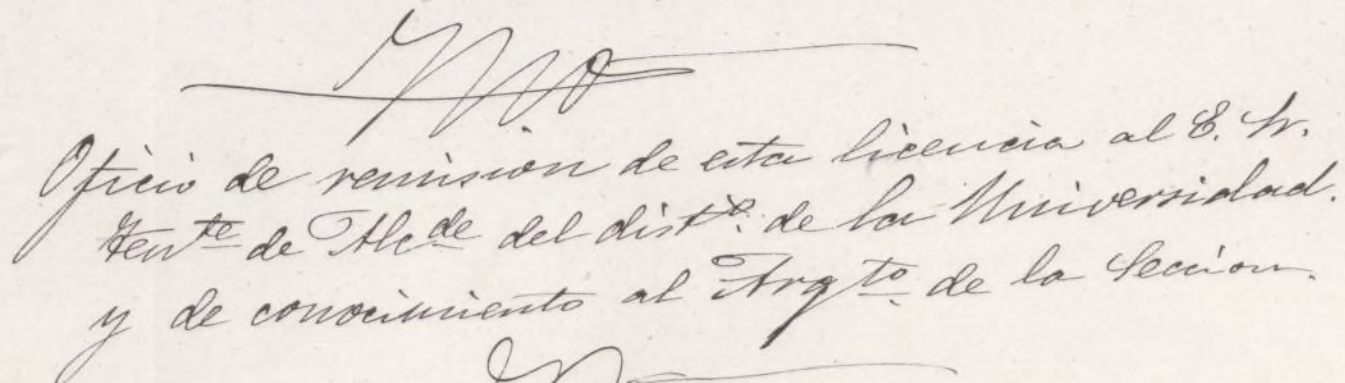 Oficio de remision de esta licencia al E. Sr.
Tente de Alcde del distº. de la Universidad.
y de conocimiento al Arqto de la Seccion.